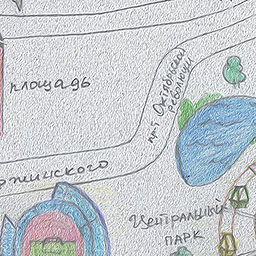 площадь
пр-т. Октябрьской
революции
ржинского
Центральный
парк